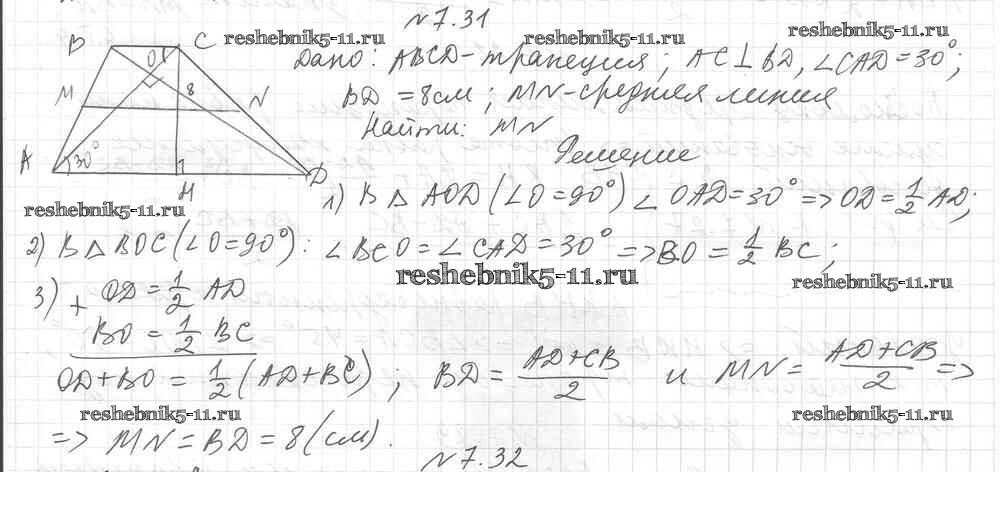 №7.31
reshebnik5-11.ru reshebnik5-11.ru reshebnik5-11.ru
B O C
Дано: ABCD-трапеция; AC⊥BD, ∠CAD=30°;
8
M N
BD =8см; MN-средняя линия
Найти: MN
A 30° H D
Решение
reshebnik5-11.ru
1) В △ AOD (∠O=90°) ∠ OAD=30° => OD=1/2 AD;
2) В △ BOC (∠O=90°): ∠BCO=∠CAD=30° => BO = 1/2 BC;
reshebnik5-11.ru reshebnik5-11.ru
3) + OD = 1/2 AD
BO = 1/2 BC
OD+BO = 1/2 (AD+BC); BD = (AD+CB)/2 и MN = (AD+CB)/2 =>
reshebnik5-11.ru reshebnik5-11.ru
=> MN = BD = 8(см).
№7.32